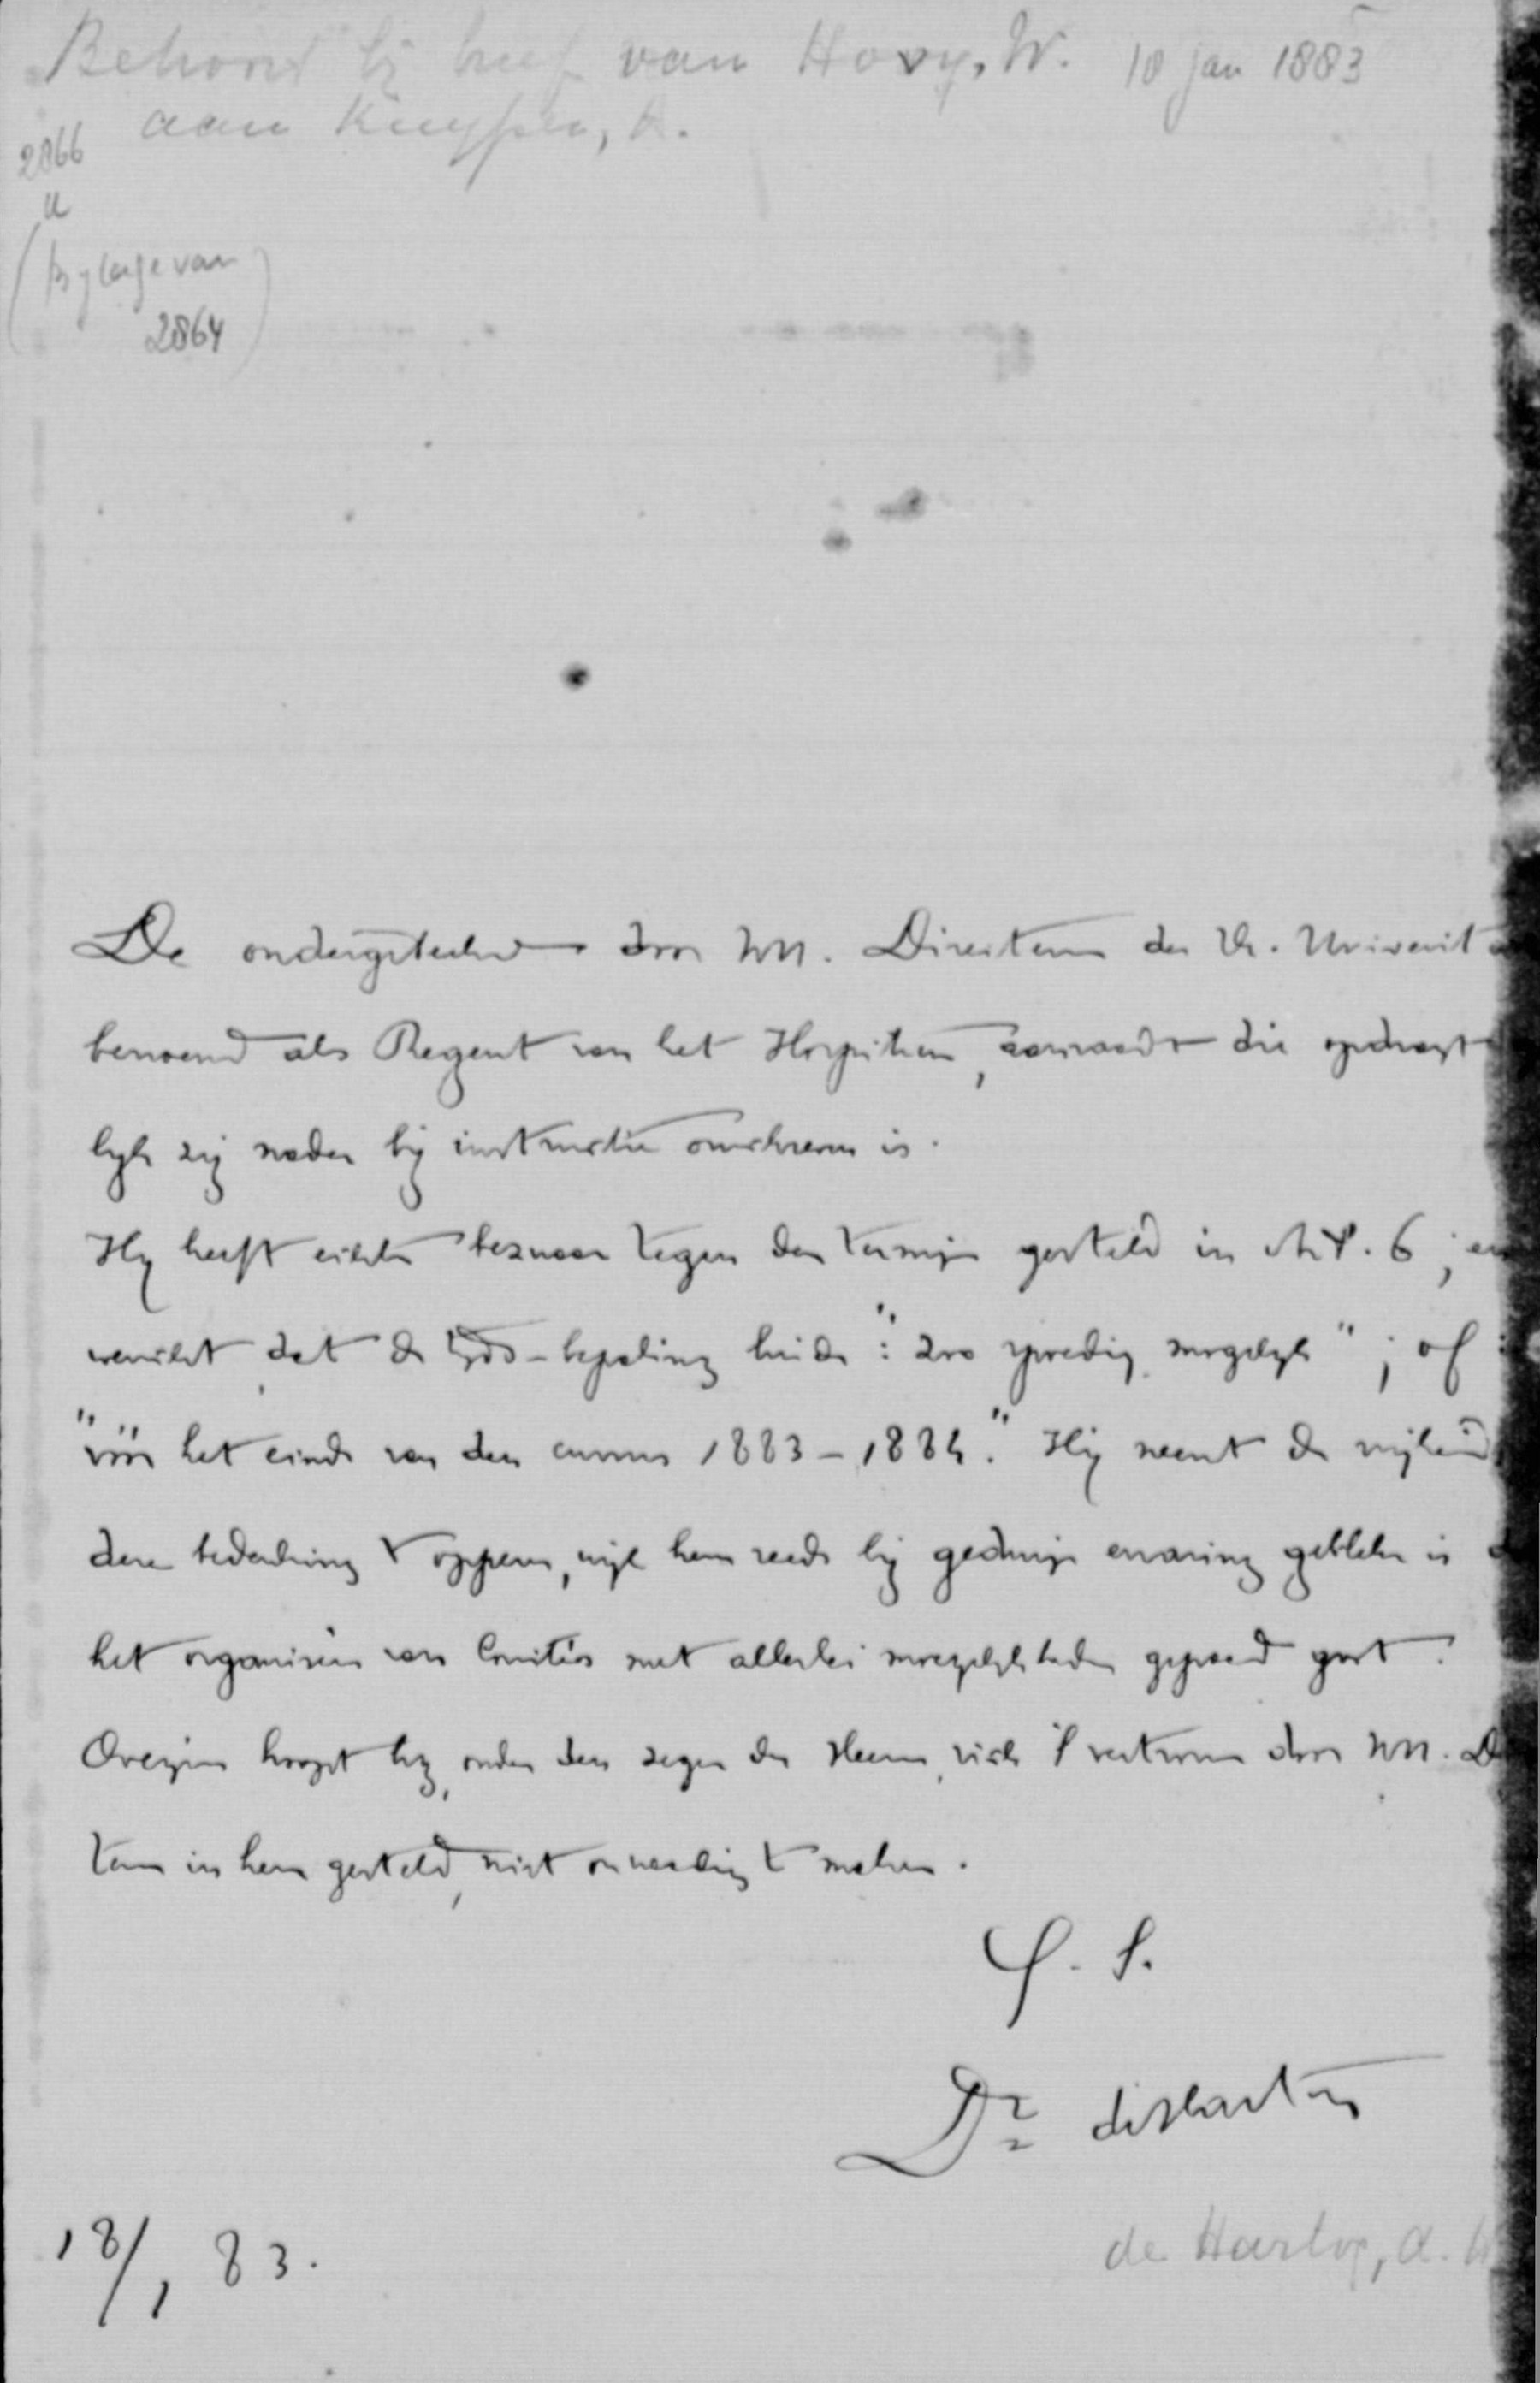 Behoort bij brief van Hovy, W. 10 jan 1883
aan Kuyper, A.
2866
a
(Bylage van
2864)
De ondergeteekende door HH. Directeuren der Vr. Universit
benoemd als Regent van het Hospitium, aanvaardt die opdragt
lyk zij nader bij instructie omschreven is.
Hy heeft echter bezwaar tegen den termijn gesteld in Art. 6; en
wenscht dat de tyds-bepaling luide: "zoo spoedig mogelyk"; of :
"vóór het einde van den cursus 1883-1884." Hij neemt de vrijheid
deze bedenking te opperen, wijl hem reeds bij ervaring gebleken is
het organiseren van Comités met allerlei moeyelykheden gepaard gaat.
Overigens hoopt hij, onder den zegen des Heeren, zich 't vertrouwen door HH. D
teuren in hem gesteld, niet onwaardig te maken.
Dr de Hartog
de Hartog, A. H
18/1 83.